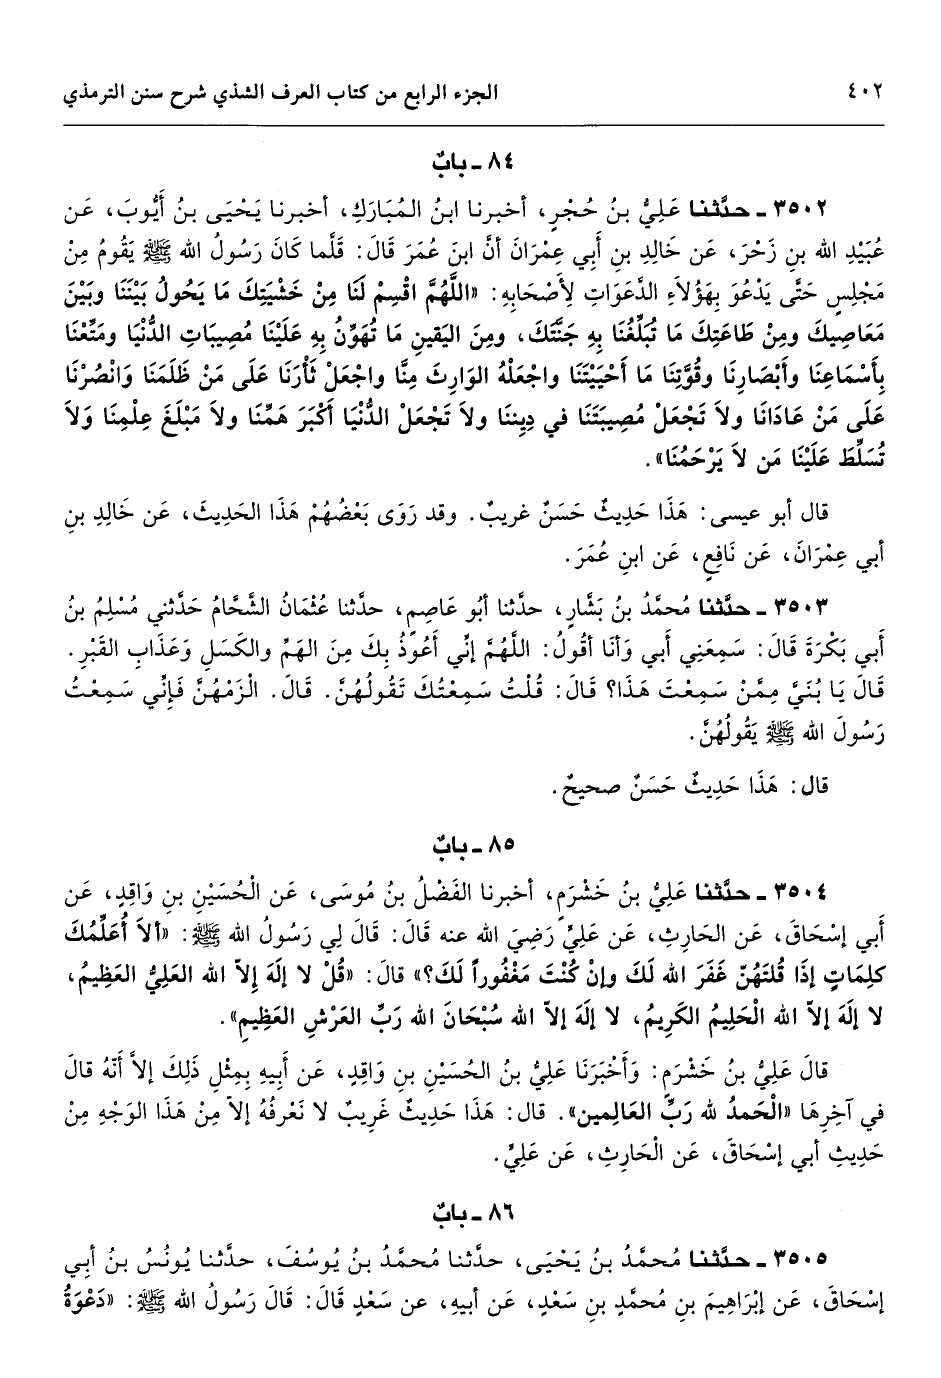 ٤٠٢ الجزء الرابع من كتاب العرف الشذي شرح سنن الترمذي
٨٤ ـ بابٌ
٣٥٠٢ ـ حدَّثنا عَلِيُّ بنُ حُجْرٍ، أخبرنا ابنُ المُبَارَكِ، أخبرنا يَحْيَى بنُ أَيُّوبَ، عَن
عُبَيْدِ الله بنِ زَحْرَ، عَن خَالِدِ بنِ أَبِي عِمْرَانَ أنَّ ابنَ عُمَرَ قَالَ: قَلَّما كَانَ رَسُولُ الله ﷺ يَقُومُ مِنْ
مَجْلِسٍ حَتَّى يَدْعُوَ بِهَؤُلاَءِ الدَّعَوَاتِ لِأَصْحَابِهِ: «اللَّهُمَّ اقْسِمْ لَنَا مِنْ خَشْيَتِكَ مَا يَحُولُ بَيْنَنَا وبَيْنَ
مَعَاصِيكَ ومِنْ طَاعَتِكَ مَا تُبَلِّغُنَا بِهِ جَنَّتَكَ، ومِنَ اليَقينِ مَا تُهَوِّنُ بِهِ عَلَيْنَا مُصِيبَاتِ الدُّنْيَا ومَتِّعْنَا
بِأَسْمَاعِنَا وأَبْصَارِنَا وقُوَّتِنَا مَا أَحْيَيْتَنَا واجْعَلْهُ الوَارِثَ مِنَّا واجْعَلْ ثَأْرَنَا عَلَى مَنْ ظَلَمَنَا وَانْصُرْنَا
عَلَى مَنْ عَادَانَا ولاَ تَجْعَلْ مُصِيبَتَنَا في دِيننَا ولاَ تَجْعَلْ الدُّنْيَا أَكْبَرَ هَمِّنَا ولاَ مَبْلَغَ عِلْمِنَا وَلاَ
تُسَلِّطْ عَلَيْنَا مَن لاَ يَرْحَمُنَا».
قال أبو عيسى: هَذَا حَدِيثٌ حَسَنٌ غريبٌ. وقد رَوَى بَعْضُهُمْ هَذَا الحَديثَ، عَن خَالِدِ بنِ
أبي عِمْرَانَ، عَن نَافِعٍ، عَن ابنِ عُمَرَ.
٣٥٠٣ ـ حدَّثنا مُحمَّدُ بنُ بَشَّارٍ، حدَّثنا أبُو عَاصِمٍ، حدَّثنا عُثْمَانُ الشَّحَّامُ حَدَّثَني مُسْلِمُ بنُ
أَبي بَكْرَةَ قَالَ: سَمِعَنِي أبي وَأَنَا أقُولُ: اللَّهُمَّ إنِّي أَعُوذُ بِكَ مِنَ الهَمِّ والكَسَلِ وَعَذَابِ القَبْرِ.
قَالَ يَا بُنَيَّ مِمَّنْ سَمِعْتَ هَذَا؟ قَالَ: قُلْتُ سَمِعْتُكَ تَقُولُهُنَّ. قَالَ. الْزَمْهُنَّ فَإِنِّي سَمِعْتُ
رَسُولَ الله ﷺ يَقُولُهُنَّ.
قال: هَذَا حَدِيثٌ حَسَنٌ صحيحٌ.
٨٥ ـ بابٌ
٣٥٠٤ ـ حدَّثنا عَلِيُّ بنُ خَشْرَمٍ، أخبرنا الفَضْلُ بنُ مُوسَى، عَن الْحُسَيْنِ بنِ وَاقِدٍ، عَن
أَبي إسْحَاقَ، عَن الحَارِثِ، عَن عَلِيٍّ رَضِيَ الله عنه قَالَ: قَالَ لِي رَسُولُ الله ﷺ: «ألاَ أُعَلِّمُكَ
كلِمَاتٍ إذَا قُلتَهُنّ غَفَرَ الله لَكَ وإنْ كُنْتَ مَغْفُوراً لَكَ؟» قالَ: «قُلْ لا إلَهَ إلاّ الله العَلِيُّ العَظِيمُ،
لا إلَهَ إلاّ الله الْحَلِيمُ الكَرِيمُ، لا إلَهَ إلاّ الله سُبْحَانَ الله رَبِّ العَرْشِ العَظِيمِ».
قَالَ عَلِيُّ بنُ خَشْرَمٍ: وَأَخْبَرَنَا عَلِيُّ بنُ الحُسَيْنِ بنِ وَاقِدٍ، عَن أَبِيهِ بِمِثْلِ ذَلِكَ إلاَّ أَنّهُ قالَ
في آخِرِهَا «الْحَمدُ لله رَبِّ العَالِمين». قال: هَذَا حَدِيثٌ غَرِيبٌ لا نَعْرِفُهُ إلاّ مِنْ هَذَا الوَجْهِ مِنْ
حَدِيثِ أبي إسْحَاقَ، عَن الْحَارِثِ، عَن عَلِيٍّ.
٨٦ ـ بابٌ
٣٥٠٥ ـ حدَّثنا مُحمَّدُ بنُ يَحْيَى، حدَّثنا مُحمَّدُ بنُ يُوسُفَ، حدَّثنا يُونُسُ بنُ أَبي
إسْحَاقَ، عَن إبْرَاهِيمَ بنِ مُحمَّدِ بنِ سَعْدٍ، عَن أبيهِ، عن سَعْدٍ قَالَ: قَالَ رَسُولُ الله ﷺ: «دَعْوَةُ